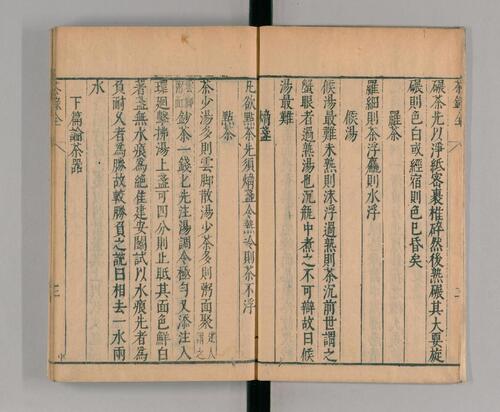 茶錄全
二
碾茶先以淨紙密裹椎碎然後熟碾其大要旋
碾則色白或經宿則色已昏矣
羅茶
羅細則茶浮麤則水浮
候湯
候湯最難未熟則沫浮過熟則茶沉前世謂之
蟹眼者過熟湯也沉瓶中煮之不可辯故曰候
湯最難
熁盞
凡欲點茶先須熁盞令熱冷則茶不浮
點茶
茶少湯多則雲脚散湯少茶多則粥面聚建人謂之
雲脚粥面鈔茶一錢匕先注湯調令極勻又添注入
環廻擊拂湯上盞可四分則止眂其面色鮮白
著盞無水痕為絕佳建安鬬試以水痕先者為
負耐久者為勝故較勝負之說曰相去一水兩
水
下篇論茶器
茶錄全
三